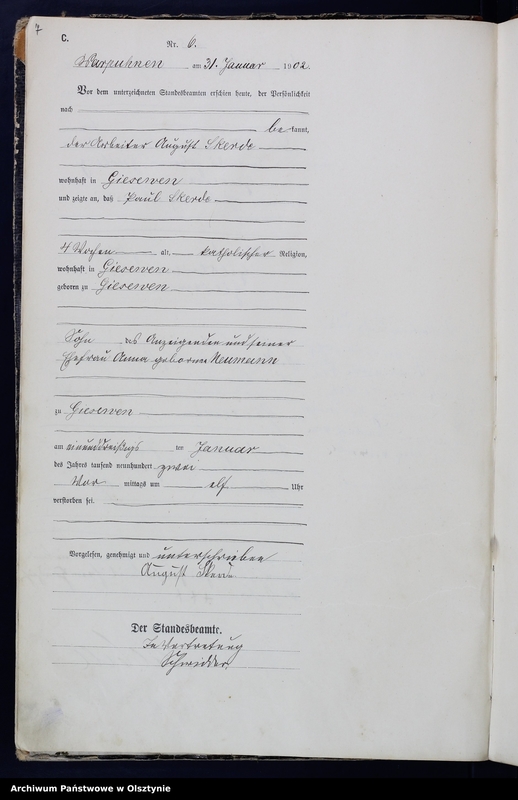 7
C.
Nr. 6.
Warpuhnen am 31. Januar 1902.
Vor dem unterzeichneten Standesbeamten erschien heute, der Persönlichkeit
nach
be kannt,
der Arbeiter August Skerde
wohnhaft in Giesewen
und zeigte an, daß Paul Skerde
4 Wochen alt, katholischer Religion,
wohnhaft in Giesewen
geboren zu Giesewen
Sohn des Anzeigenden und seiner
Ehefrau Anna geborene Neumann
zu Giesewen
am einunddreißigs ten Januar
des Jahres tausend neunhundert zwei
Vor mittags um elf Uhr
verstorben sei.
Vorgelesen, genehmigt und unterschrieben
August
Der Standesbeamte.
In Vertretung
Archiwum Państwowe w Olsztynie